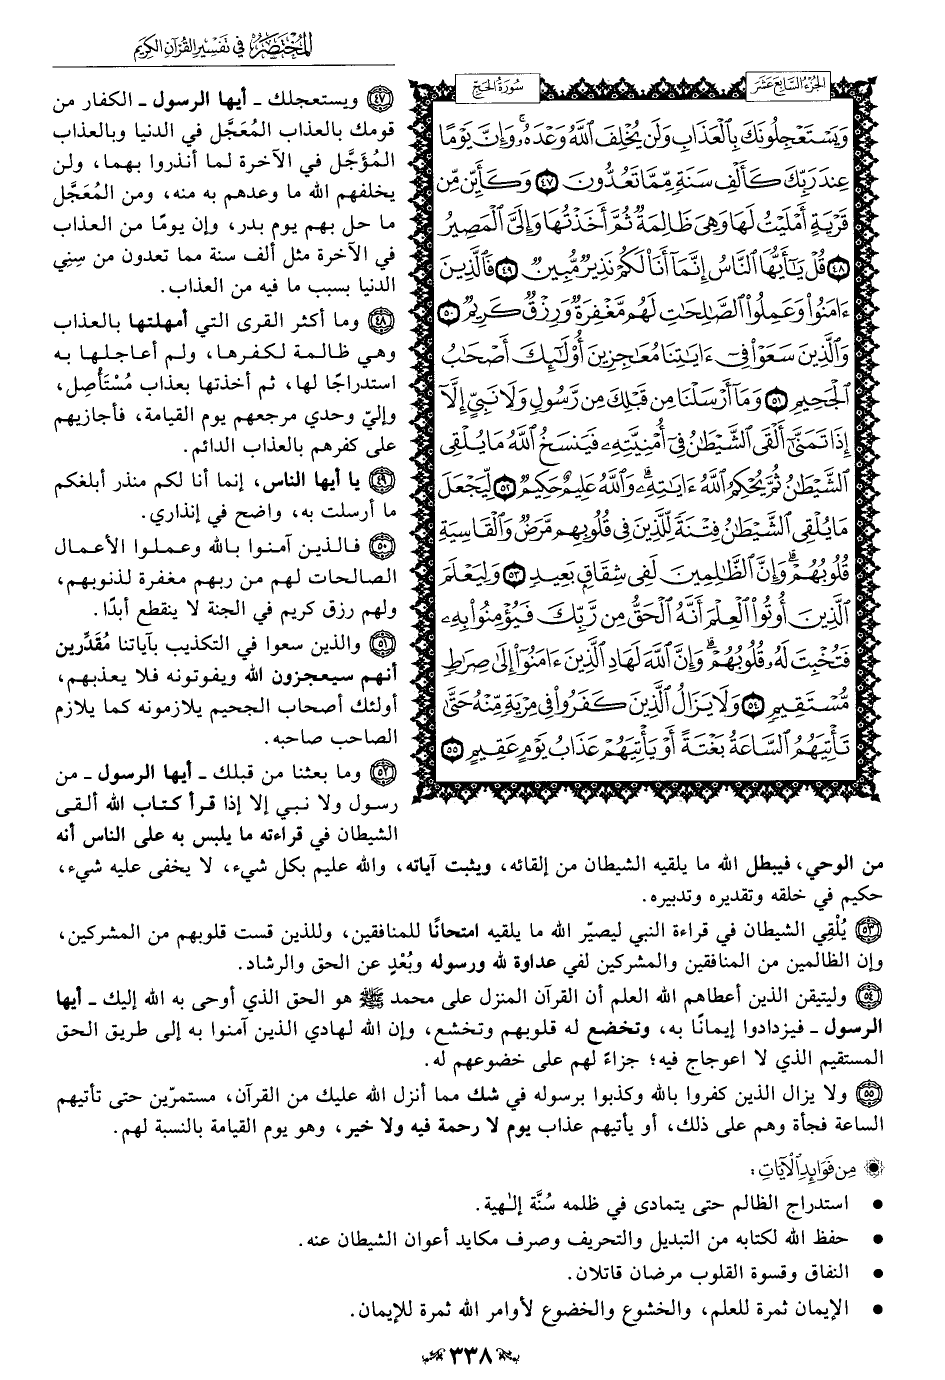 المختصر في تفسير القرآن الكريم
الجزء السابع عشر
سورة الحج
وَيَسْتَعْجِلُونَكَ بِٱلْعَذَابِ وَلَن يُخْلِفَ ٱللَّهُ وَعْدَهُۥۚ وَإِنَّ يَوْمًا
عِندَ رَبِّكَ كَأَلْفِ سَنَةٍ مِّمَّا تَعُدُّونَ ٤٧ وَكَأَيِّن مِّن
قَرْيَةٍ أَمْلَيْتُ لَهَا وَهِىَ ظَالِمَةٌ ثُمَّ أَخَذْتُهَا وَإِلَىَّ ٱلْمَصِيرُ
٤٨ قُلْ يَٰٓأَيُّهَا ٱلنَّاسُ إِنَّمَآ أَنَا۠ لَكُمْ نَذِيرٌ مُّبِينٌ ٤٩ فَٱلَّذِينَ
ءَامَنُوا۟ وَعَمِلُوا۟ ٱلصَّٰلِحَٰتِ لَهُم مَّغْفِرَةٌ وَرِزْقٌ كَرِيمٌ ٥٠
وَٱلَّذِينَ سَعَوْا۟ فِىٓ ءَايَٰتِنَا مُعَٰجِزِينَ أُو۟لَٰٓئِكَ أَصْحَٰبُ
ٱلْجَحِيمِ ٥١ وَمَآ أَرْسَلْنَا مِن قَبْلِكَ مِن رَّسُولٍ وَلَا نَبِىٍّ إِلَّآ
إِذَا تَمَنَّىٰٓ أَلْقَى ٱلشَّيْطَٰنُ فِىٓ أُمْنِيَّتِهِۦ فَيَنسَخُ ٱللَّهُ مَا يُلْقِى
ٱلشَّيْطَٰنُ ثُمَّ يُحْكِمُ ٱللَّهُ ءَايَٰتِهِۦۗ وَٱللَّهُ عَلِيمٌ حَكِيمٌ ٥٢ لِّيَجْعَلَ
مَا يُلْقِى ٱلشَّيْطَٰنُ فِتْنَةً لِّلَّذِينَ فِى قُلُوبِهِم مَّرَضٌ وَٱلْقَاسِيَةِ
قُلُوبُهُمْۗ وَإِنَّ ٱلظَّٰلِمِينَ لَفِى شِقَاقٍۭ بَعِيدٍ ٥٣ وَلِيَعْلَمَ
ٱلَّذِينَ أُوتُوا۟ ٱلْعِلْمَ أَنَّهُ ٱلْحَقُّ مِن رَّبِّكَ فَيُؤْمِنُوا۟ بِهِۦ
فَتُخْبِتَ لَهُۥ قُلُوبُهُمْۗ وَإِنَّ ٱللَّهَ لَهَادِ ٱلَّذِينَ ءَامَنُوٓا۟ إِلَىٰ صِرَٰطٍ
مُّسْتَقِيمٍ ٥٤ وَلَا يَزَالُ ٱلَّذِينَ كَفَرُوا۟ فِى مِرْيَةٍ مِّنْهُ حَتَّىٰ
تَأْتِيَهُمُ ٱلسَّاعَةُ بَغْتَةً أَوْ يَأْتِيَهُمْ عَذَابُ يَوْمٍ عَقِيمٍ ٥٥
٤٧ ويستعجلك ـ أيها الرسول ـ الكفار من
قومك بالعذاب المُعَجَّل في الدنيا وبالعذاب
المُؤَجَّل في الآخرة لما أنذروا بهما، ولن
يخلفهم الله ما وعدهم به منه، ومن المُعَجَّل
ما حل بهم يوم بدر، وإن يومًا من العذاب
في الآخرة مثل ألف سنة مما تعدون من سِنِي
الدنيا بسبب ما فيه من العذاب.
٤٨ وما أكثر القرى التي أمهلتها بالعذاب
وهي ظالمة لكفرها، ولم أعاجلها به
استدراجًا لها، ثم أخذتها بعذاب مُسْتَأْصِل،
وإليّ وحدي مرجعهم يوم القيامة، فأجازيهم
على كفرهم بالعذاب الدائم.
٤٩ يا أيها الناس، إنما أنا لكم منذر أبلغكم
ما أرسلت به، واضح في إنذاري.
٥٠ فالذين آمنوا بالله وعملوا الأعمال
الصالحات لهم من ربهم مغفرة لذنوبهم،
ولهم رزق كريم في الجنة لا ينقطع أبدًا.
٥١ والذين سعوا في التكذيب بآياتنا مُقَدِّرين
أنهم سيعجزون الله ويفوتونه فلا يعذبهم،
أولئك أصحاب الجحيم يلازمونه كما يلازم
الصاحب صاحبه.
٥٢ وما بعثنا من قبلك ـ أيها الرسول ـ من
رسول ولا نبي إلا إذا قرأ كتاب الله ألقى
الشيطان في قراءته ما يلبس به على الناس أنه
من الوحي، فيبطل الله ما يلقيه الشيطان من إلقائه، ويثبت آياته، والله عليم بكل شيء، لا يخفى عليه شيء،
حكيم في خلقه وتقديره وتدبيره.
٥٣ يُلْقِي الشيطان في قراءة النبي ليصيّر الله ما يلقيه امتحانًا للمنافقين، وللذين قست قلوبهم من المشركين،
وإن الظالمين من المنافقين والمشركين لفي عداوة لله ورسوله وبُعْدٍ عن الحق والرشاد.
٥٤ وليتيقن الذين أعطاهم الله العلم أن القرآن المنزل على محمد ﷺ هو الحق الذي أوحى به الله إليك ـ أيها
الرسول ـ فيزدادوا إيمانًا به، وتخضع له قلوبهم وتخشع، وإن الله لهادي الذين آمنوا به إلى طريق الحق
المستقيم الذي لا اعوجاج فيه؛ جزاءً لهم على خضوعهم له.
٥٥ ولا يزال الذين كفروا بالله وكذبوا برسوله في شك مما أنزل الله عليك من القرآن، مستمرّين حتى تأتيهم
الساعة فجأة وهم على ذلك، أو يأتيهم عذاب يوم لا رحمة فيه ولا خير، وهو يوم القيامة بالنسبة لهم.
من فوائد الآيات:
• استدراج الظالم حتى يتمادى في ظلمه سُنَّة إلٰهية.
• حفظ الله لكتابه من التبديل والتحريف وصرف مكايد أعوان الشيطان عنه.
• النفاق وقسوة القلوب مرضان قاتلان.
• الإيمان ثمرة للعلم، والخشوع والخضوع لأوامر الله ثمرة للإيمان.
٣٣٨